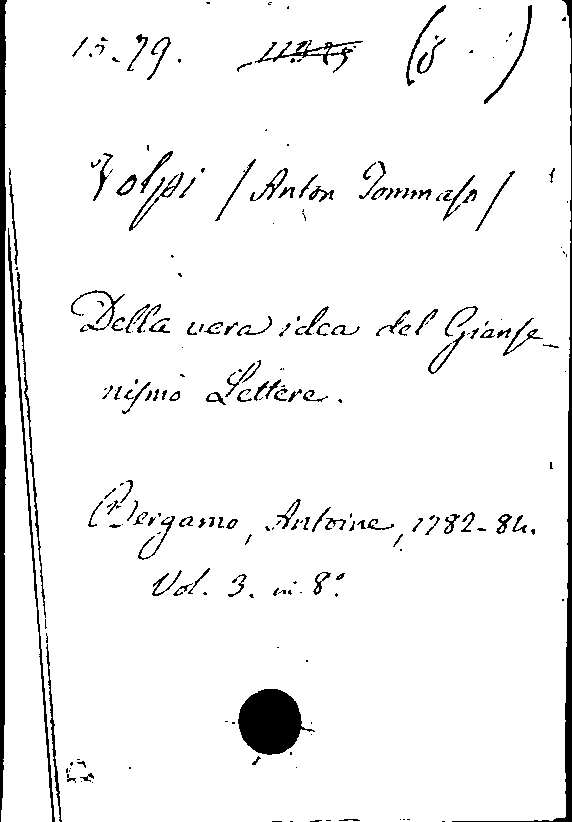 15.79. (8
Volpi /Anton Tommaso/
Della vera idea del Gianse-
nismo Lettere.
Bergamo, Antoine, 1782-84.
Vol. 3. in 8°.